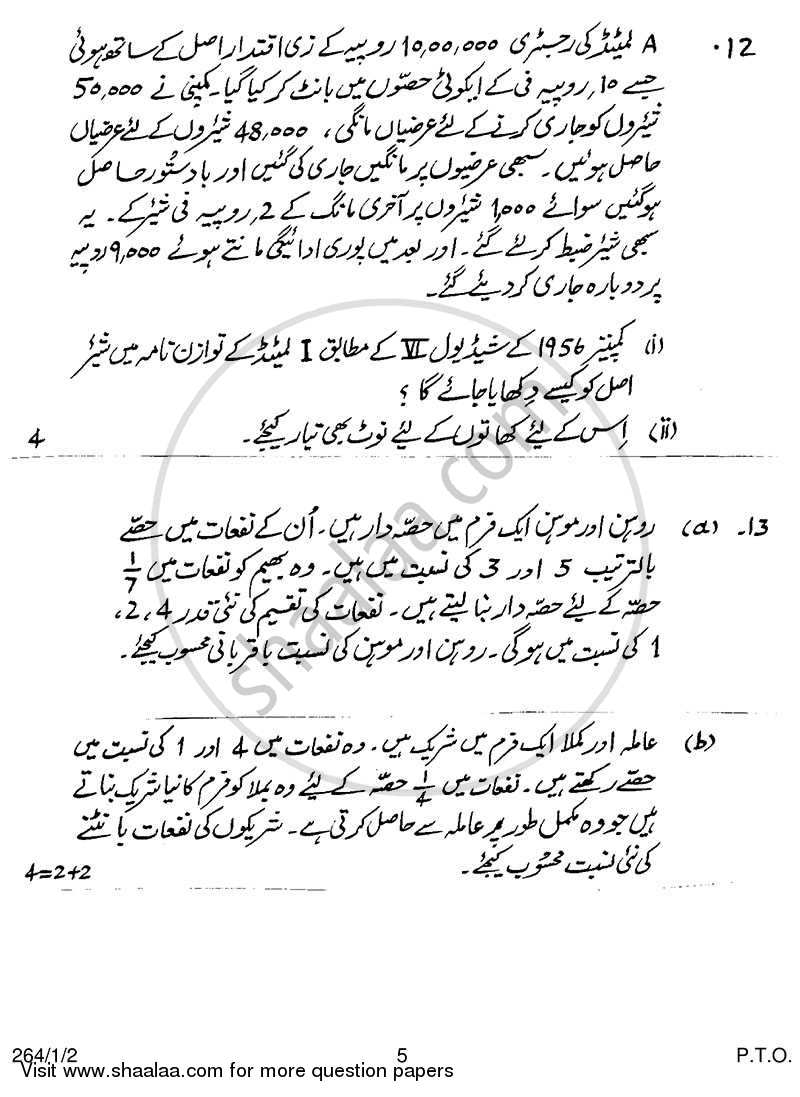 12. A لمیٹڈ کی رجسٹری 10,00,000 روپیہ کے زی اقتدار اصل کے ساتھ ہوئی
جسے 10 روپیہ فی کے ایکوئٹی حصّوں میں بانٹ کر کیا گیا۔ کمپنی نے 50,000
شیئروں کو جاری کرنے کے لئے عرضیاں مانگی، 48,000 شیئروں کے لئے عرضیاں
حاصل ہوئیں۔ سبھی عرضیوں پر مانگیں جاری کی گئیں اور بادستُور حاصل
ہوگئیں سوائے 1,000 شیئروں پر آخری مانگ کے 2 روپیہ فی شیئر کے۔ یہ
سبھی شیئر ضبط کر لئے گئے۔ اور بعد میں پوری ادائیگی مانتے ہوئے 9,000 روپیہ
پر دوبارہ جاری کر دیئے گئے۔
(i) کمپنیز 1956 کے شیڈیول VI کے مطابق I لمیٹڈ کے توازن نامہ میں شیئر
اصل کو کیسے دِکھایا جائے گا ؟
(ii) اِس کے لئے کھاتوں کے لئے نوٹ بھی تیار کیجئے۔ 4
13. (a) روہن اور موہن ایک فرم میں حصّہ دار ہیں۔ اُن کے نفعات میں حصّے
بالترتیب 5 اور 3 کی نسبت میں ہیں۔ وہ بھیم کو نفعات میں 1/7
حصّہ کے لئے حصّہ دار بنا لیتے ہیں۔ نفعات کی تقسیم کی نئی قدر 4، 2،
1 کی نسبت میں ہوگی۔ روہن اور موہن کی نسبت باقربانی محسوب کیجئے۔
(b) عاملہ اور کملا ایک فرم میں شریک ہیں۔ وہ نفعات میں 4 اور 1 کی نسبت میں
حصّے رکھتے ہیں۔ نفعات میں 1/4 حصّہ کے لئے وہ بملا کو فرم کا نیا شریک بناتے
ہیں جو وہ مکمل طور پر عاملہ سے حاصل کرتی ہے۔ شریکوں کی نفعات بانٹنے
کی نئی نسبت محسُوب کیجئے۔ 4=2+2
shaalaa.com
264/1/2 5 P.T.O.
Visit www.shaalaa.com for more question papers